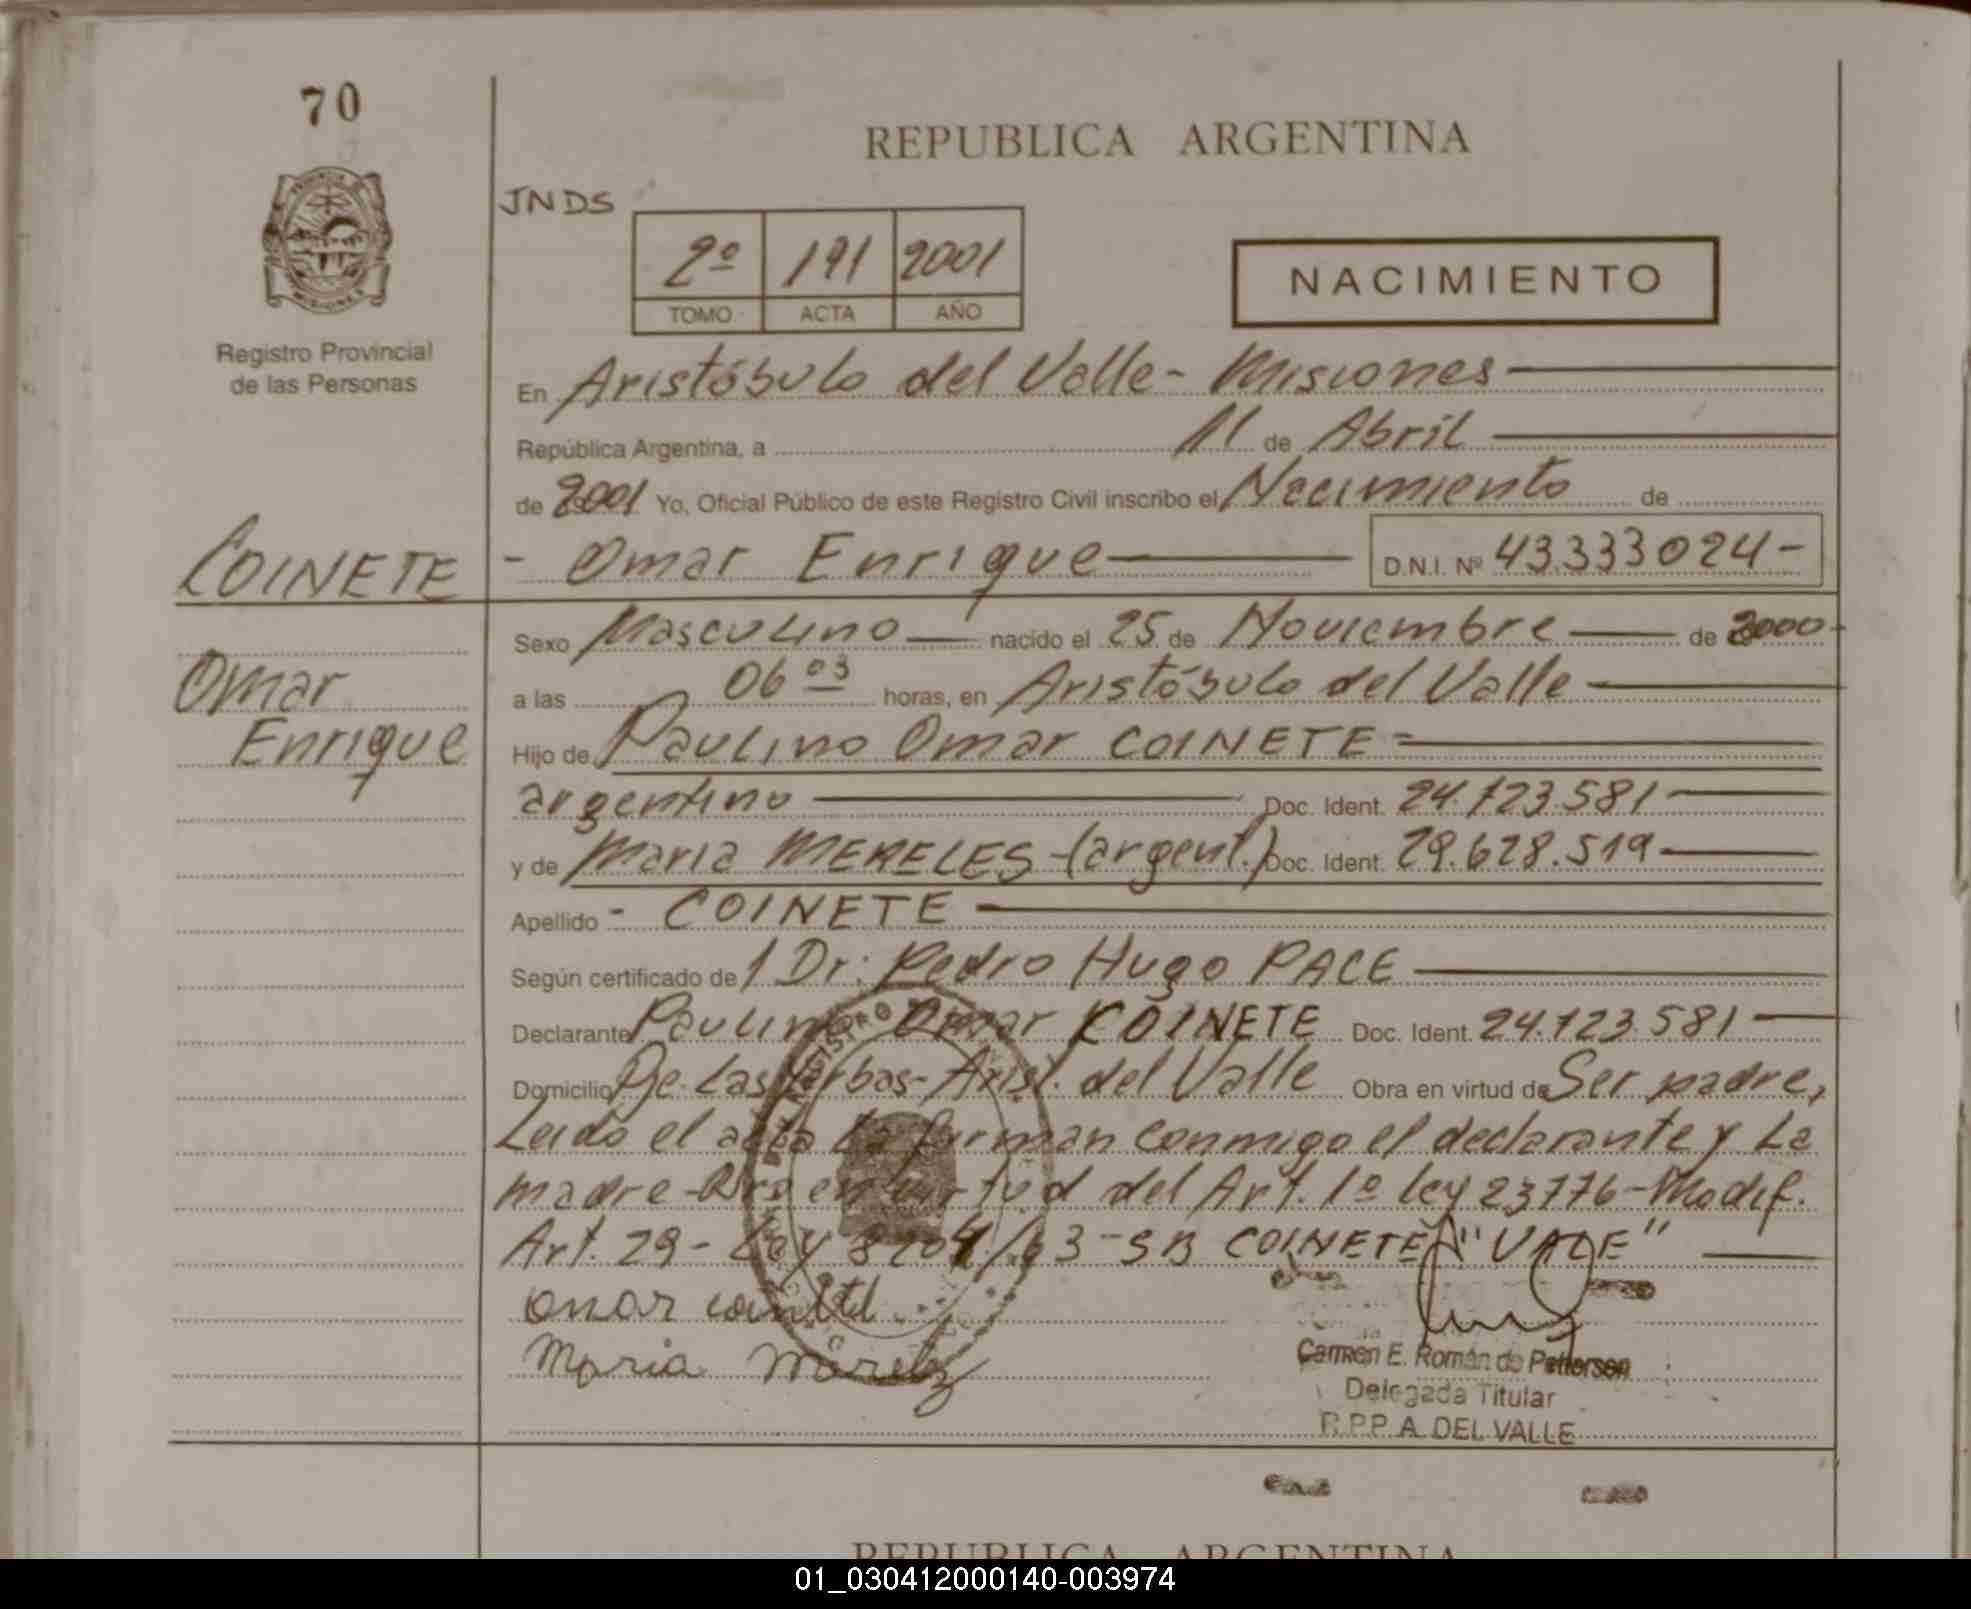 70
REPUBLICA ARGENTINA
JNDS
2º 191 2001
TOMO ACTA AÑO
NACIMIENTO
PROVINCIA DE
MISIONES
Registro Provincial
de las Personas
En Aristóbulo del Valle - Misiones
República Argentina, a 11 de Abril
de 2001 Yo, Oficial Público de este Registro Civil inscribo el Nacimiento de
COINETE - Omar Enrique D.N.I. Nº 43333024-
Omar
Enrique
Sexo Masculino nacido el 25 de Noviembre de 2000-
a las 06 03 horas, en Aristóbulo del Valle
Hijo de Paulino Omar COINETE
argentino Doc. Ident. 24.723.581
y de Maria MERELES - (argent.) Doc. Ident. 29.628.519
Apellido - COINETE
Según certificado de / Dr: Pedro Hugo PACE
Declarante Paulino Omar COINETE Doc. Ident. 24.723.581
Domicilio Pje. Las Yerbas - Arist. del Valle Obra en virtud de Ser padre,
Leido el acta la firman conmigo el declarante y La
madre - en virtud del Art. 1º ley 23776 - Modif.
Art. 29 - Ley 8204/63 - SB COINETE "VALE"
omar
Maria
Carmen E. Román de Petterson
Delegada Titular
R.P.P. A. DEL VALLE
REPUBLICA ARGENTINA
01_030412000140-003974